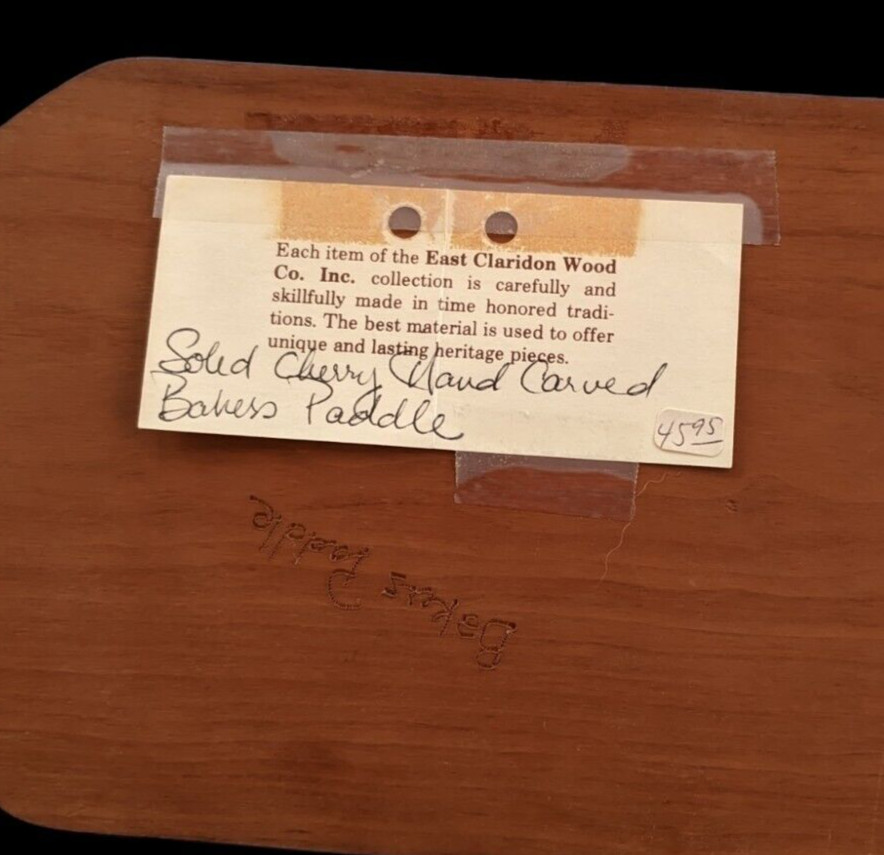 Each item of the East Claridon Wood
Co. Inc. collection is carefully and
skillfully made in time honored tradi-
tions. The best material is used to offer
unique and lasting heritage pieces.
Solid Cherry Hand Carved
Bakers Paddle
45 95
Bakers Paddle